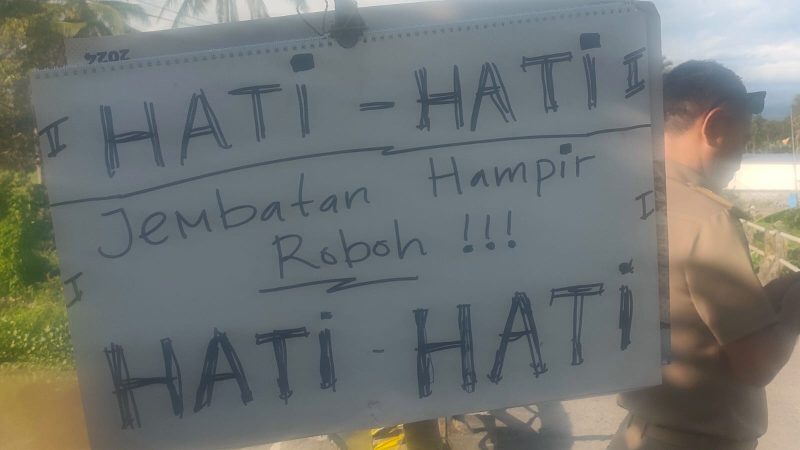 2024
HATi - HATi
Jembatan Hampir
Roboh !!!
HATi - HATi